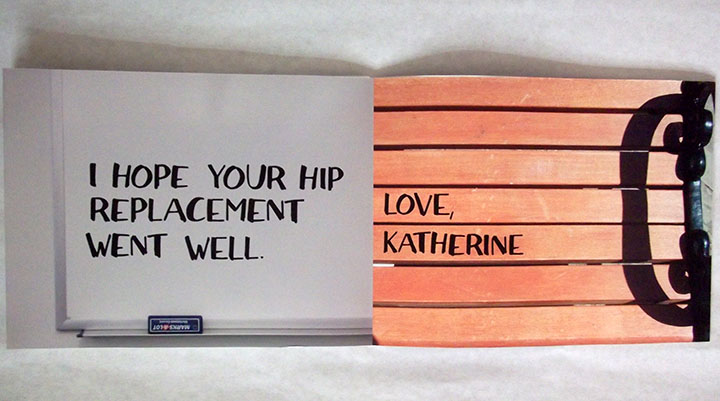 I HOPE YOUR HIP
REPLACEMENT
WENT WELL.
LOVE,
KATHERINE
MARKS-A-LOT